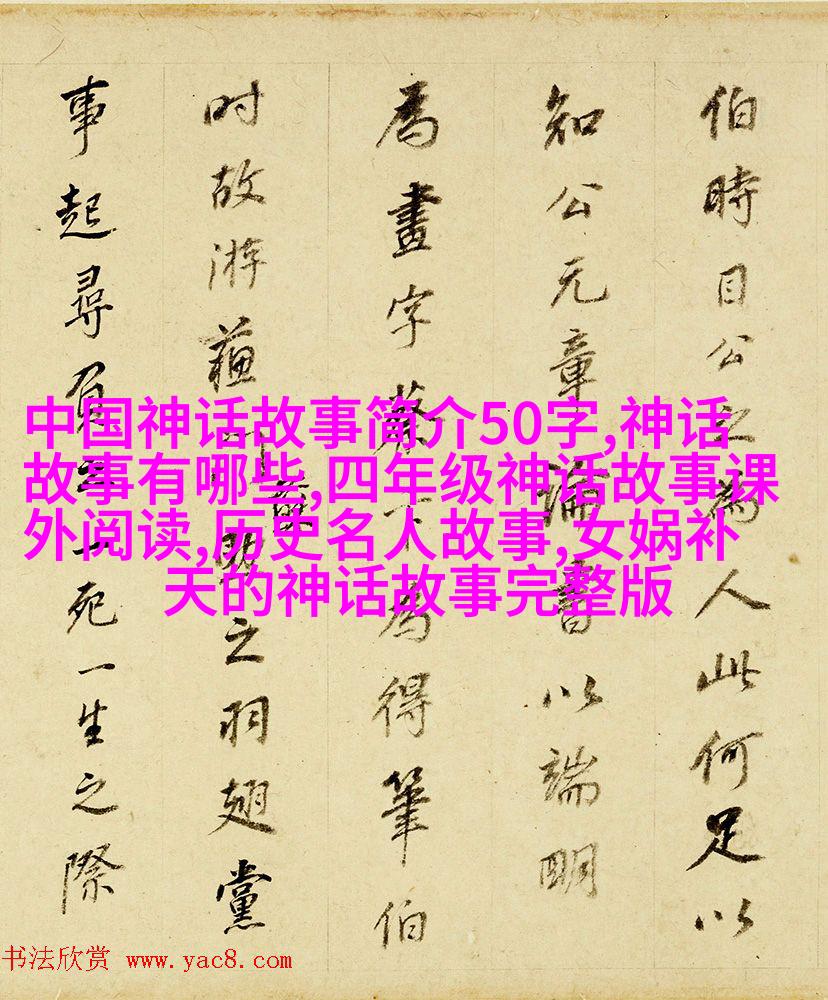 伯時目公之為人此何足以
知公元章論書以端明
為畫字蔡下為得筆伯
时故游蘇門前助之羽翅黨
事起尋負一死一生之際
中国神话故事简介50字,神话
故事有哪些,四年级神话故事课
外阅读,历史名人故事,女娲补
天的神话故事完整版
书法欣赏 www.yac8.com